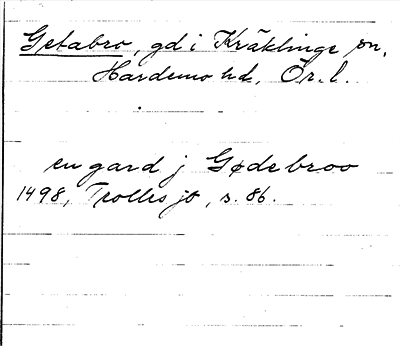 Getabro, gd i Kräklinge sn,
Hardemo hd, Ör. l.
en gard j Gødebroo
1498, Trolles jb, s. 86.